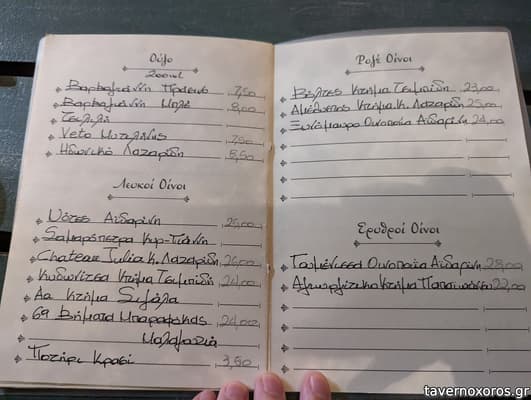 Ούζο
200ml
Βαρβαγιάννη Πράσινο 7,50
Βαρβαγιάννη Μπλέ 8,00
Τσιλιλή
Veto Μυτιλήνης 7,50
Ηδωνικό Λαζαρίδη 8,50
Λευκοί Οίνοι
Νότες Αϊδαρίνη 25,00
Σαμαρόπετρα Κυρ-Γιάννη
Chateau Julia Κ. Λαζαρίδη 26,00
Κυδωνίτσα Κτήμα Τσιμπίδη 24,00
Αα Κτήμα Σιγάλα
6α Βήματα Μπαραφάκας 24,00
Μαλαγουζιά
Ποτήρι Κρασί 3,50
Ροζέ Οίνοι
Βόλτες Κτήμα Τσιμπίδη 23,00
Αμέθυστος Κτήμα Κ. Λαζαρίδη 25,00
Ξινόμαυρο Οινοποιία Αϊδαρίνη 24,00
Ερυθροί Οίνοι
Γουμένισσα Οινοποιία Αϊδαρίνη 28,00
Αγιωργίτικο Κτήμα Παπαϊωάννου 22,00
tavernoxoros.gr